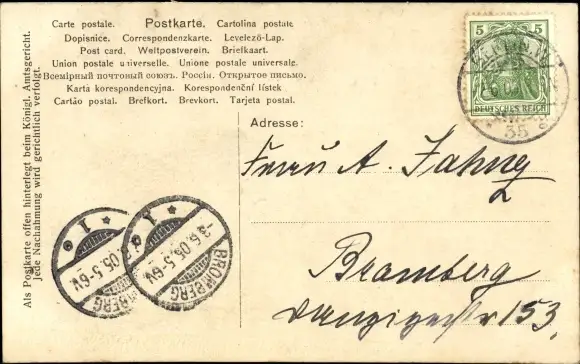 Carte postale. Postkarte. Cartolina postale
Dopisnice. Correspondenzkarte. Levelező-Lap.
Post card. Weltpostverein. Briefkaart.
Union postale universelle. Unione postale universale.
Всемірный почтовый союзъ. Россія. Открытое письмо.
Karta korespondencyjna. Korespondenční lístek
Cartão postal. Brefkort. Brevkort. Tarjeta postal.
Als Postkarte offen hinterlegt beim Königl. Amtsgericht.
Jede Nachahmung wird gerichtlich verfolgt.
5 5
DEUTSCHES REICH
35
Adresse:
Herrn A. Jahnz
Bromberg
Danzigerstr 153.
BROMBERG
-3.6.05.5-6N.
* 1 o
BROMBERG
05.5-6N.
* 1 o